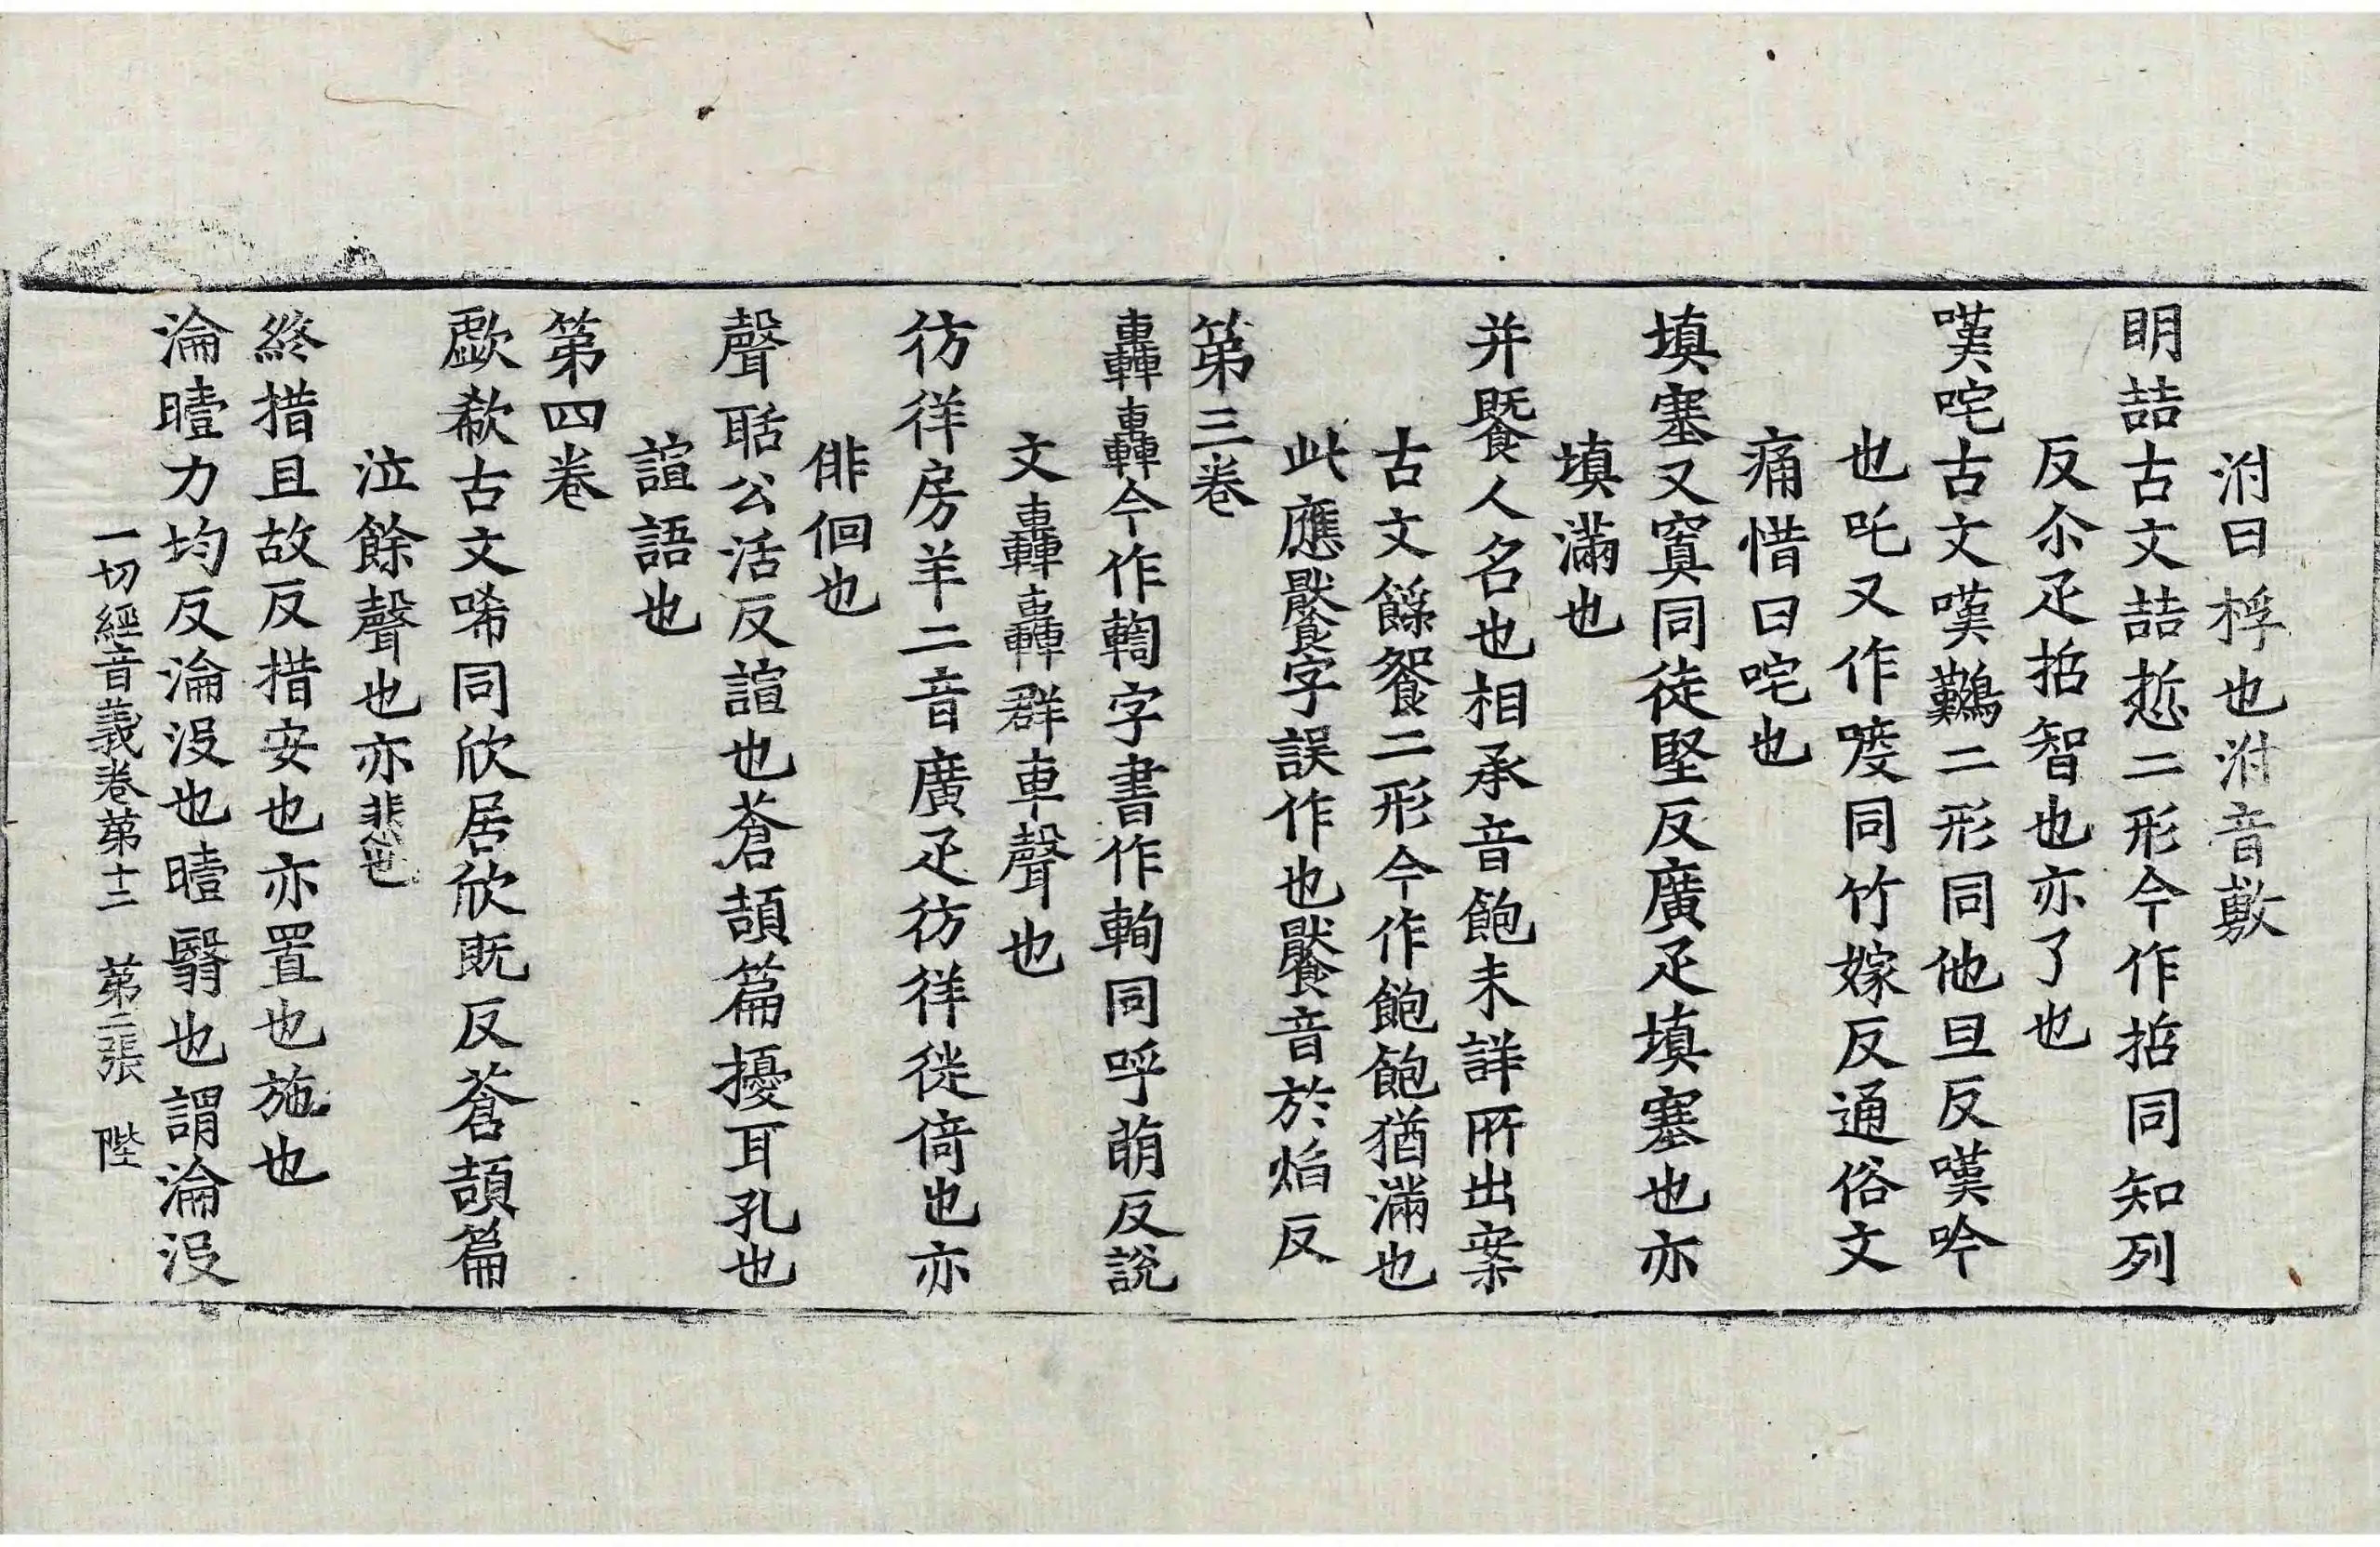 泭曰桴也泭音敷
明喆古文喆悊二形今作哲同知列
反尒疋哲智也亦了也
嘆咤古文嘆鸛二形同他旦反嘆吟
也吒又作㖡同竹嫁反通俗文
痛惜曰咤也
填塞又窴同徒堅反廣疋填塞也亦
填滿也
并䬡人名也相承音飽未詳所出案
古文䭋䬰二形今作飽飽猶滿也
此應饜字誤作也饜音於焰反
第三卷
轟轟今作軥字書作軥同呼萌反說
文轟轟群車聲也
彷徉房羊二音廣疋彷徉徙倚也亦
俳佪也
聲聒公活反諠也蒼頡篇擾耳孔也
諠語也
第四卷
歔欷古文唏同欣居欣既反蒼頡篇
泣餘聲也亦悲也
終措且故反措安也亦置也施也
淪曀力均反淪沒也曀翳也謂淪沒
一切經音義卷第十二 第二張 陛